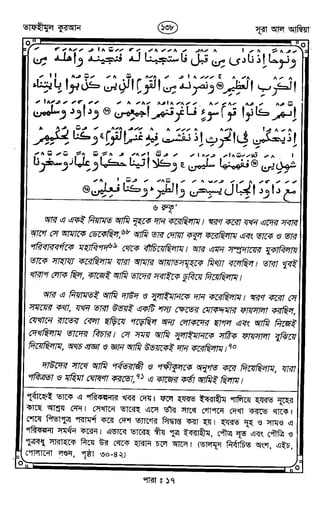 তাফহীমুল কুরআন
১৩৮
সূরা আল আম্বিয়া
وَنُوحًا إِذْ نَادَىٰ مِنْ قَبْلُ فَاسْتَجَبْنَا لَهُ فَنَجَّيْنَاهُ وَأَهْلَهُ مِنَ
الْكَرْبِ الْعَظِيمِ ۞ وَنَصَرْنَاهُ مِنَ الْقَوْمِ الَّذِينَ كَذَّبُوا بِآيَاتِنَا
إِنَّهُمْ كَانُوا قَوْمَ سَوْءٍ فَأَغْرَقْنَاهُمْ أَجْمَعِينَ ۞ وَدَاوُدَ وَسُلَيْمَانَ
إِذْ يَحْكُمَانِ فِي الْحَرْثِ إِذْ نَفَشَتْ فِيهِ غَنَمُ الْقَوْمِ ۚ وَكُنَّا لِحُكْمِهِمْ
شَاهِدِينَ ۞ فَفَهَّمْنَاهَا سُلَيْمَانَ ۚ وَكُلًّا آتَيْنَا حُكْمًا وَعِلْمًا ۚ وَسَخَّرْنَا
مَعَ دَاوُدَ الْجِبَالَ يُسَبِّحْنَ وَالطَّيْرَ ۚ وَكُنَّا فَاعِلِينَ ۞
৬ রুকূ'
আর এ একই নিয়ামত আমি নূহকে দান করেছিলাম। স্মরণ করো যখন এদের সবার
আগে সে আমাকে ডেকেছিল,৬৮ আমি তার দোয়া কবুল করেছিলাম এবং তাকে ও তার
পরিবারবর্গকে মহাবিপদ৬৯ থেকে বাঁচিয়েছিলাম। আর এমন সম্প্রদায়ের মুকাবিলায়
তাকে সাহায্য করেছিলাম যারা আমার আয়াতসমূহকে মিথ্যা বলেছিল। তারা খুবই
খারাপ লোক ছিল, কাজেই আমি তাদের সবাইকে ডুবিয়ে দিয়েছিলাম।
আর এ নিয়ামতই আমি দাউদ ও সুলাইমানকে দান করেছিলাম। স্মরণ করো সে
সময়ের কথা, যখন তারা উভয়ই একটি শস্য ক্ষেতের মোকদ্দমার ফায়সালা করছিল,
যেখানে রাতের বেলা ছড়িয়ে পড়েছিল অন্য লোকদের ছাগল এবং আমি নিজেই
দেখছিলাম তাদের বিচার। সে সময় আমি সুলাইমানকে সঠিক ফায়সালা বুঝিয়ে
দিয়েছিলাম, অথচ প্রজ্ঞা ও জ্ঞান আমি উভয়কেই দান করেছিলাম।৭০
দাউদের সাথে আমি পর্বতরাজী ও পক্ষীকূলকে অনুগত করে দিয়েছিলাম, যারা
পবিত্রতা ও মহিমা ঘোষণা করতো,৭১ এ কাজের কর্তা আমিই ছিলাম।
পূর্বাহ্নেই তাকে এ পরিকল্পনার খবর দেয়। ফলে হযরত ইবরাহীম পালিয়ে হযরত নূহের
কাছে আশ্রয় নেন। সেখানে তারেহ এসে তাঁর সাথে গোপনে দেখা করতে থাকে।
শেষে পিতাপুত্র পরামর্শ করে দেশ ত্যাগের সিদ্ধান্ত করা হয়। হযরত নূহ ও সামও এ
পরিকল্পনা সমর্থন করেন। এভাবে তারেহ স্বীয় পুত্র ইবরাহীম, পৌত্র লূত এবং পৌত্রি ও
পুত্রবধূ সারাহকে নিয়ে উর থেকে হারান চলে আসে। (তালমূদ নির্বাচিত অংশ, এইচ,
পোলানো লন্ডন, পৃষ্ঠা ৩০-৪২)
পারা : ১৭